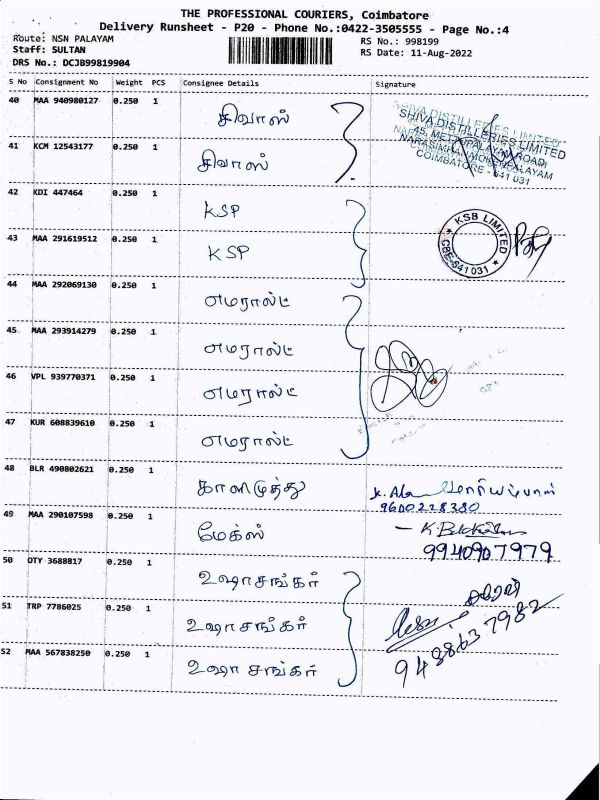 THE PROFESSIONAL COURIERS, Coimbatore
Delivery Runsheet - P20 - Phone No.:0422-3505555 - Page No.:4
Route: NSN PALAYAM
RS No.: 998199
Staff: SULTAN
RS Date: 11-Aug-2022
DRS No.: DCJB99819904
S No Consignment No Weight PCS Consignee Details Signature
40 MAA 940980127 0.250 1 சிவாஸ்
SHIVA DISTILLERIES LIMITED
45, METTUPALAYAM ROAD
NARASIMHANAICKENPALAYAM
COIMBATORE - 641 031
41 KCM 12543177 0.250 1 சிவாஸ்
42 KDI 447464 0.250 1 KSP
KSB LIMITED
CBE-641 031
43 MAA 291619512 0.250 1 KSP
44 MAA 292069130 0.250 1 எமரால்ட்
45 MAA 293914279 0.250 1 எமரால்ட்
46 VPL 939770371 0.250 1 எமரால்ட்
47 KUR 608839610 0.250 1 எமரால்ட்
48 BLR 490802621 0.250 1 காளிமுத்து
9600228380
49 MAA 290107598 0.250 1 மேக்ஸ்
9940907979
50 OTY 3688817 0.250 1 உஷாசங்கர்
51 TRP 7786025 0.250 1 உஷாசங்கர்
9488637982
52 MAA 567838250 0.250 1 உஷா சங்கர்